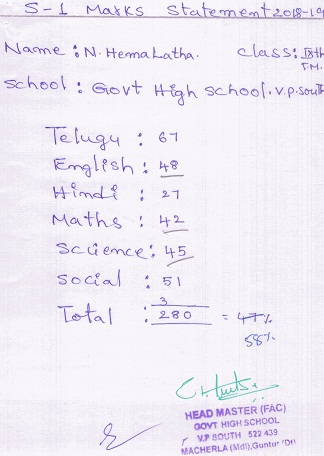 S-1 Marks Statement 2018-19
Name : N. Hema Latha. Class: IXth
T.M.
School : Govt High School. V.P. South
Telugu : 67
English : 48
Hindi : 27
Maths : 42
Science : 45
Social : 51
3
Total : 280 = 47%
58%
HEAD MASTER (FAC)
GOVT HIGH SCHOOL
V.P SOUTH 522 439
MACHERLA (Mdl), Guntur (Dt)